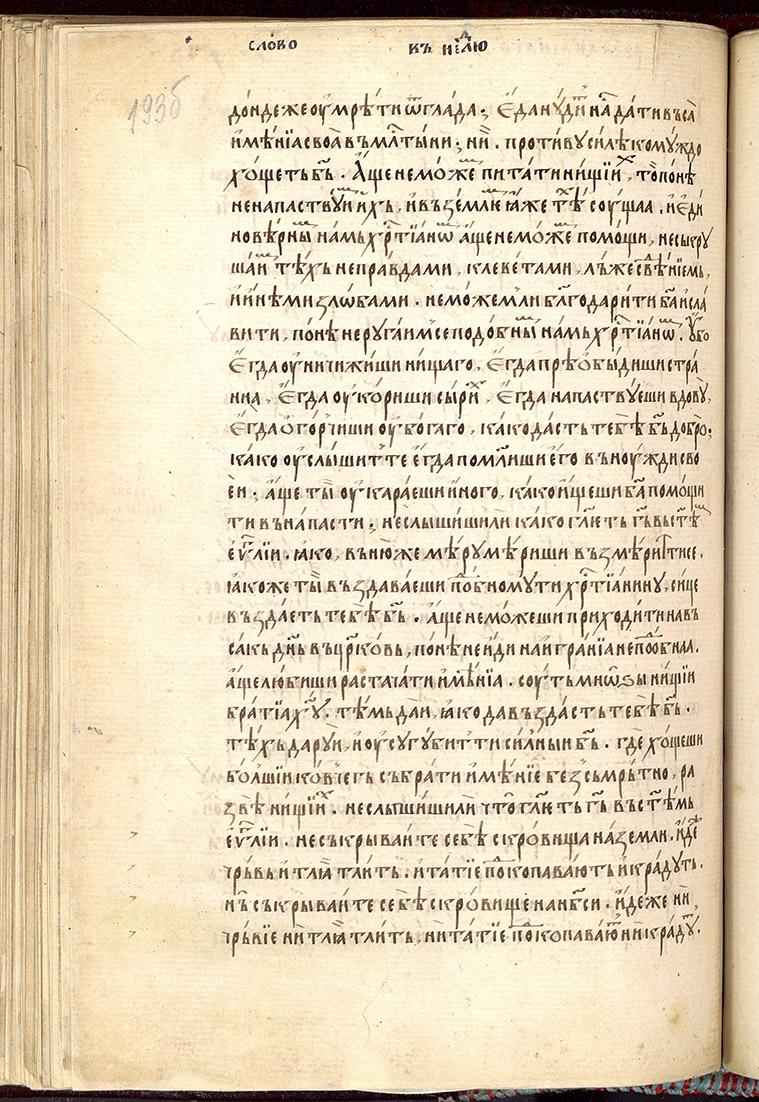 сло́во въ неⷣлю
193б
до́ндеже оу҆мрѣ́ти ѿ гла́да ; Є҆да ну́дитⷭ҇ на́ⷭ да́ти въсѧ̀
и҆мѣ́нїа своѧ̀ въ млⷭ҇тыни ; ни̏ . проти́ву си́лѣ комꙋ́ждо
хо́щетъ бг҃ь . А҆́ще не мо́жеши пита́ти ни́щїиⷯ , то̀ понѣ̀
не напа́ствꙋи и҆́хь , и҆ въ зе́млѥ ꙗ҆́же тѣⷯ соу́щаа . и҆ є҆ди
новѣ́рныⷨ на́мь хрⷭ҇тїа́нѡⷨ а҆́ще не мо́жеши помо́щи , не съкрꙋ
ша́и тѣ́хъ непра́вдами , клеве́тами , лъ́же свⷣѣ́нїемь ,
и҆ и҆нѣ́ми зло́бами . не мо́жемли бл҃годари́ти бг҃а и҆ сла́
вити , понѣ̀ не руга́имсе подо́бныⷨ на́мь хрⷭ҇тїа́нѡⷨ . у҆́бо
Є҆гда̀ оу҆ничижи́ши ни́щаго , Є҆гда̀ прѣѡ҆би́диши стра́
нна , Є҆гда̀ оу҆ко́риши сы́риⷯ , Є҆гда̀ напа́ствꙋеши вдову̀ ,
Є҆гда̀ ѻ҆горчи́ши оу҆бо́гаго , ка́ко да́сть тебѣ̀ бг҃ь добро̀ ;
ка́ко оу҆слы́шитⸯ те є҆гда̀ помо́лиши є҆го̀ въ ноу́жди сво
є҆и ; а҆́ще ты̀ оу҆кара́еши и҆́ного , ка́ко и҆́щеши бг҃а помощи
ти въ напа́сти ; не слы́шишили ка́ко гл҃еть гь҃ въ ст҃ѣⷨ
є҆ѵⷢ҇лїи . ꙗ҆ко , въ ню́же мѣ́ру мѣ́риши възмѣ́ритⸯтисе .
ꙗ҆коже ты̀ въздава́еши поⷣбномути хрⷭ҇тїа́нину , си́це
възда́сть тебѣ̀ бг҃ь . а҆́ще не мо́жеши приходи́ти на въ
са́кь дн҃ь въ цр҃ковь , понѣ̀ не и҆дѝ на и҆гра́нїа неподⷪ҇бнаа .
а҆́ще лю́биши растача́ти и҆мѣ́нїа . соу́ть мно́ѕы ни́щїи
бра́тїа хв҃ꙋ . тѣ́мь да́и , ꙗ҆ко да възда́сть тебѣ̀ бг҃ь .
тѣ́хъ да́руи , и҆ оу҆сугу́битⸯ ти си́лныи бг҃ь . гдѐ хо́щеши
бо́лшїи ко́вчегь събра́ти и҆мѣ́нїе безсъмрътно , ра
звѣ̀ ни́щїиⷯ . не слы́шишили что̀ гл҃еть гь҃ въ ст҃ѣмь
є҆ѵⷢ҇лїи . не съкрыва́ите себѣ̀ скро́вища на земли . и҆дѣⷤ
чръ́вь и҆ тлꙗ̀ тли́ть . и҆ та́тїе поⷣкопава́ють и҆ кра́дуть .
нъ̀ съкрыва́ите се́бѣ скро́вище на нб҃си . и҆де́же ни
чръ́вїе ни̏ тлꙗ̀ тли́ть , ни̏ та́тїе поⷣкопава́юⷮ ни̏ кра́дꙋⷮ .